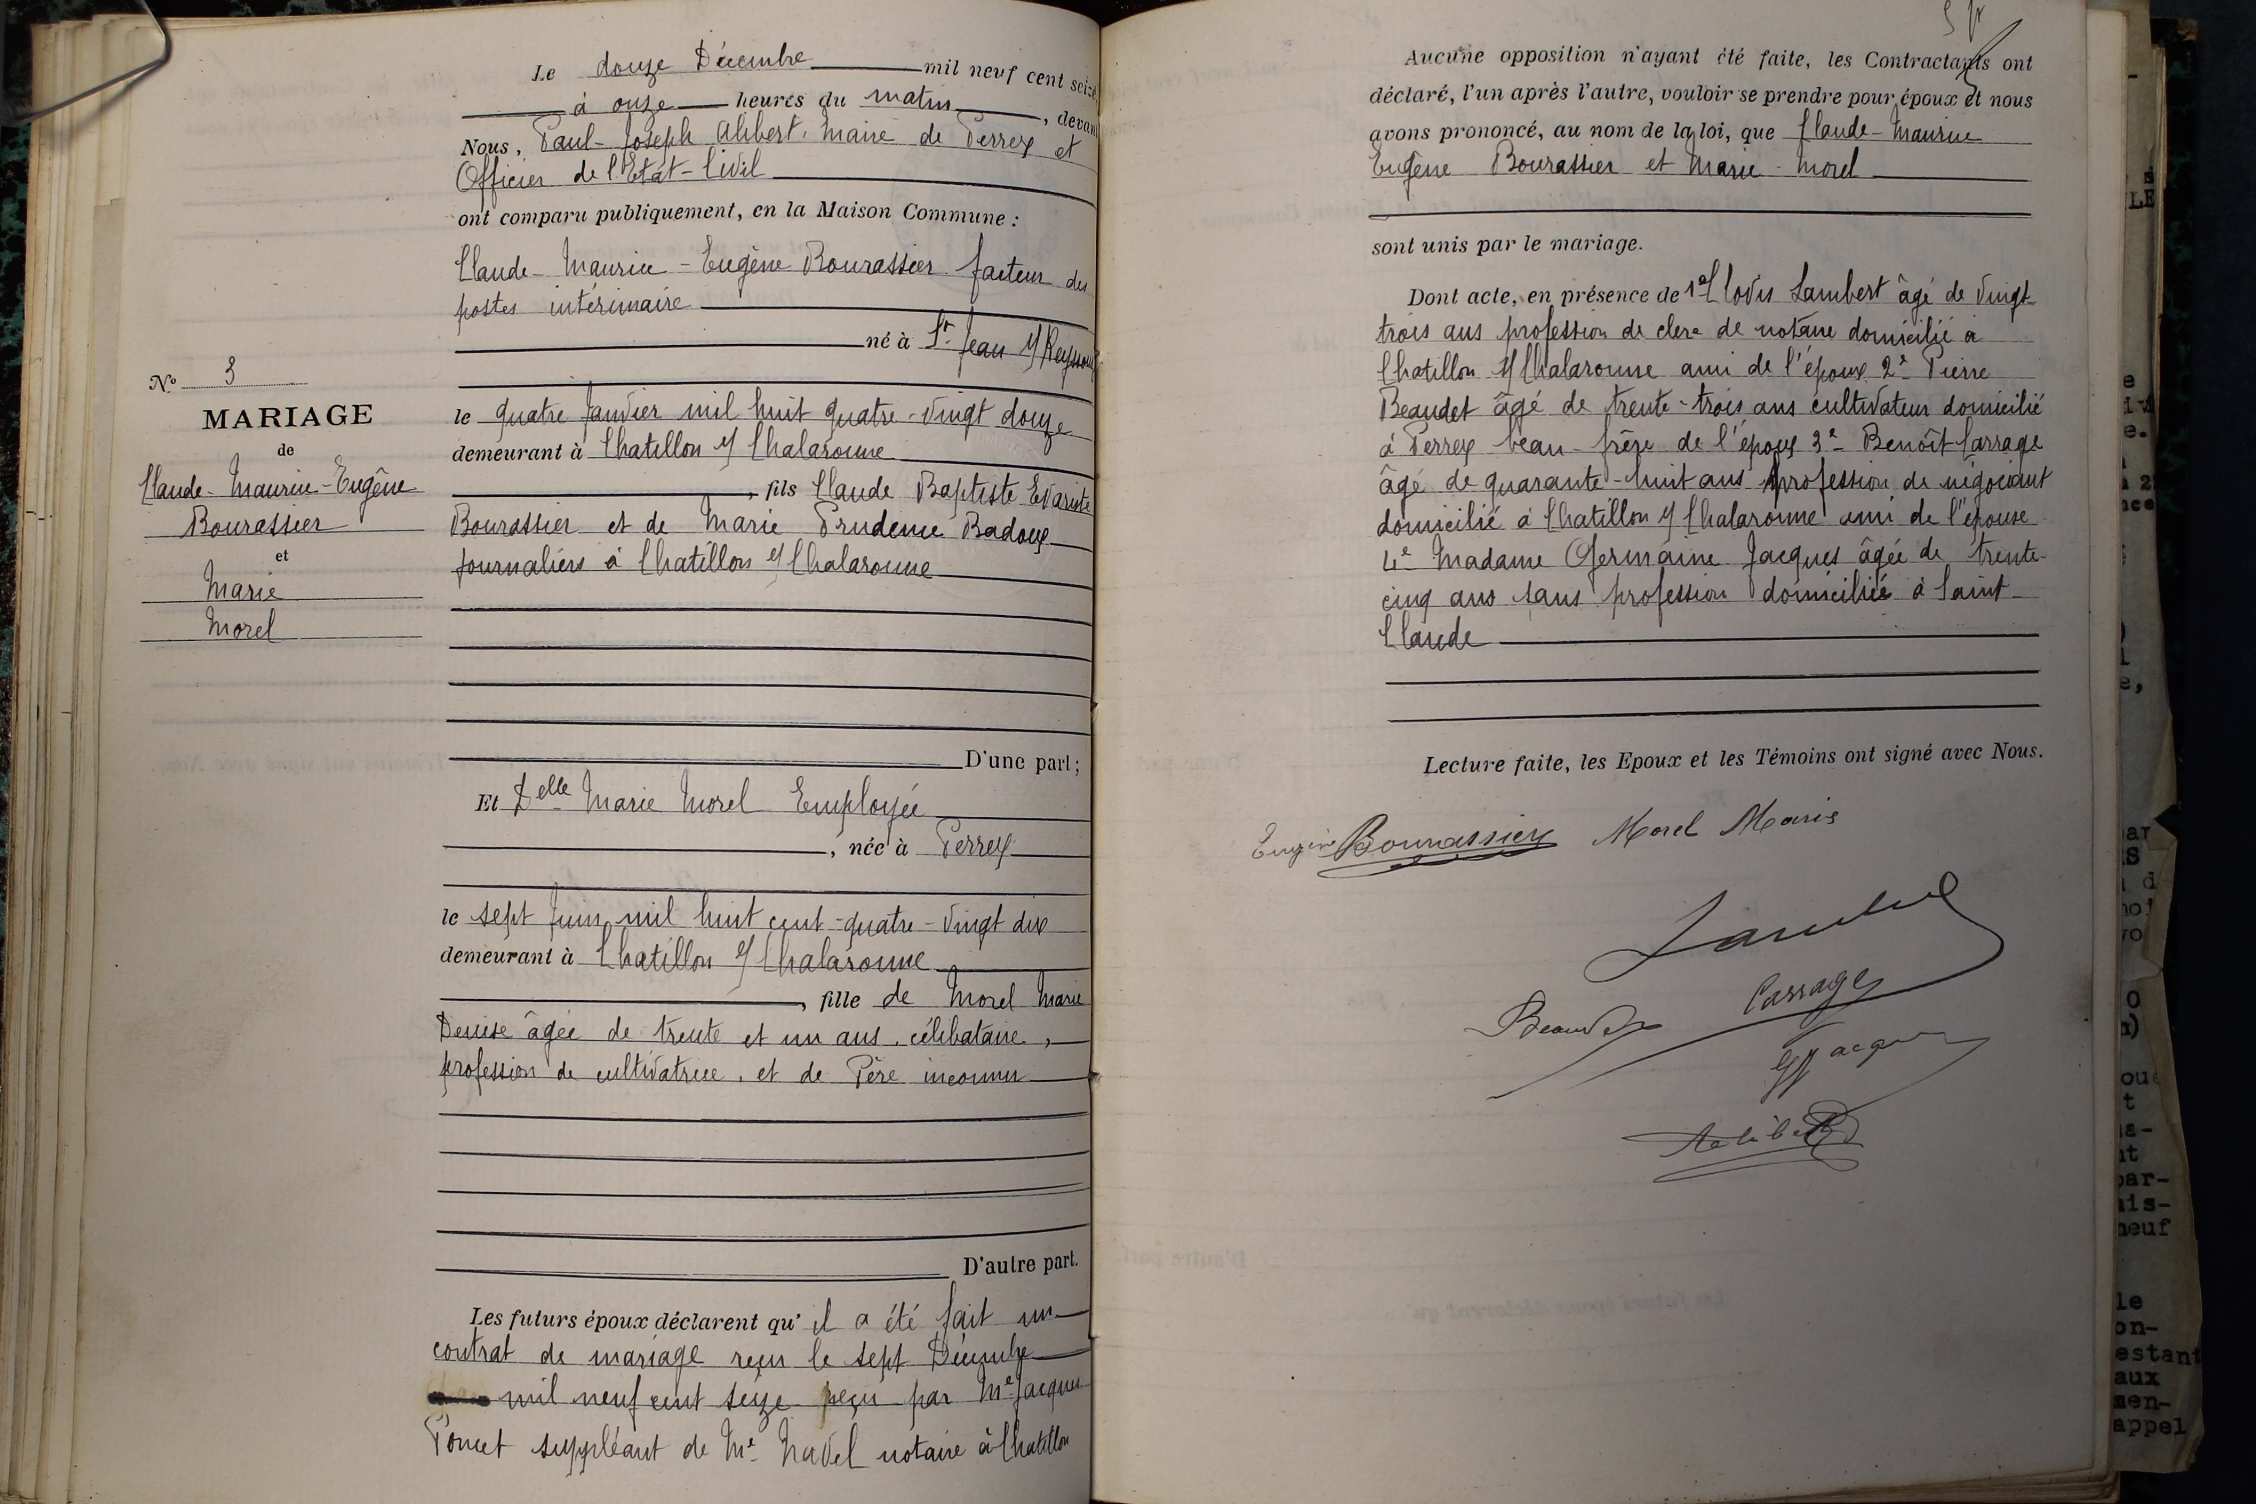 N° 3
MARIAGE
de
Claude-Maurice-Eugène
Bourassier
et
Marie
Morel
Le douze Décembre mil neuf cent seize
à onze heures du matin, devant
Nous, Paul-Joseph Alibert, Maire de Perrex et
Officier de l'Etat-Civil
ont comparu publiquement, en la Maison Commune :
Claude-Maurice-Eugène Bourassier facteur des
postes intérimaire
né à St Jean s/ Reyssouze
le quatre Janvier mil huit quatre-vingt douze
demeurant à Chatillon s/ Chalaronne
, fils Claude Baptiste Evariste
Bourassier et de Marie Prudence Badoux
journaliers à Chatillon s/ Chalaronne
D'une part ;
Et Delle Marie Morel Employée
, née à Perrex
le sept Juin mil huit cent-quatre-vingt dix
demeurant à Chatillon s/ Chalaronne
, fille de Morel Marie
Denise âgée de trente et un ans, célibataire,
profession de cultivatrice, et de Père inconnu
D'autre part.
Les futurs époux déclarent qu'il a été fait un
contrat de mariage reçu le sept Décembre
mil neuf cent seize reçu par Me Jacques
Poncet suppléant de Me Navel notaire à Chatillon
Aucune opposition n'ayant été faite, les Contractants ont
déclaré, l'un après l'autre, vouloir se prendre pour époux et nous
avons prononcé, au nom de la loi, que Claude-Maurice
Eugène Bourassier et Marie Morel
sont unis par le mariage.
Dont acte, en présence de 1e Clovis Lambert âgé de vingt
trois ans profession de clerc de notaire domicilié à
Chatillon s/ Chalaronne ami de l'époux 2e Pierre
Beaudet âgé de trente-trois ans cultivateur domicilié
à Perrex beau-frère de l'époux 3e Benoît Carrage
âgé de quarante-huit ans profession de négociant
domicilié à Chatillon s/ Chalaronne ami de l'épouse
4e Madame Germaine Jacques âgée de trente-
cinq ans sans profession domiciliée à Saint-
Claude
Lecture faite, les Epoux et les Témoins ont signé avec Nous.
Eugène Bourassier Morel Marie
Lambert
Carrage
Beaudet
G Jacques
Alibert